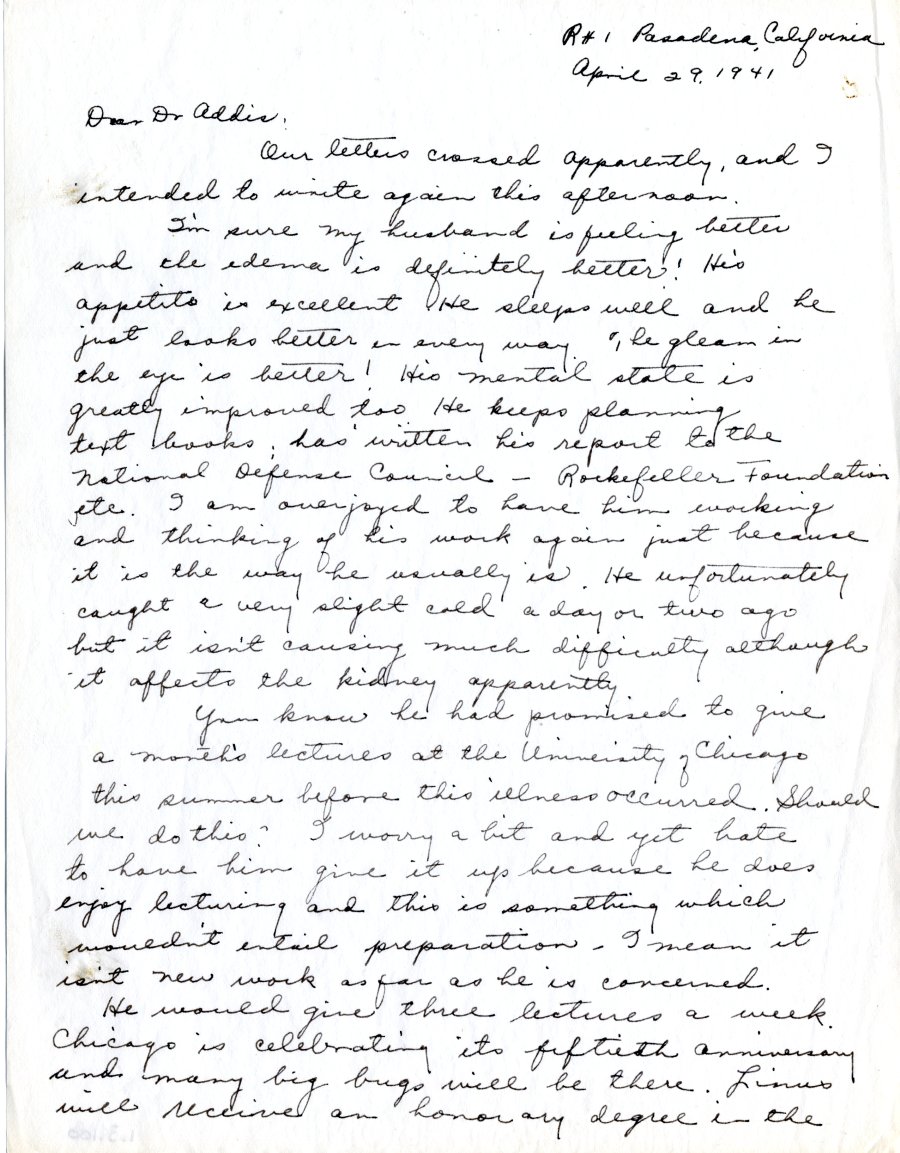 R#1 Pasadena, California
April 29, 1941
Dear Dr Addis,
Our letters crossed apparently, and I
intended to write again this afternoon.
I'm sure my husband is feeling better
and the edema is definitely better! His
appetite is excellent He sleeps well and he
just looks better in every way. "The gleam in
the eye is better! His mental state is
greatly improved too He keeps planning
text books, has written his report to the
National Defense Council – Rockefeller Foundation
etc. I am overjoyed to have him working
and thinking of his work again just because
it is the way he usually is. He unfortunately
caught a very slight cold a day or two ago
but it isn't causing much difficulty although
it affects the kidney apparently
You know he had promised to give
a month's lectures at the University of Chicago
this summer before this illness occurred. Should
we do this? I worry a bit and yet hate
to have him give it up because he does
enjoy lecturing and this is something which
wouldn't entail preparation – I mean it
isn't new work as far as he is concerned.
He would give three lectures a week.
Chicago is celebrating its fiftieth anniversary
and many big bugs will be there. Linus
will receive an honorary degree in the
1.3.100